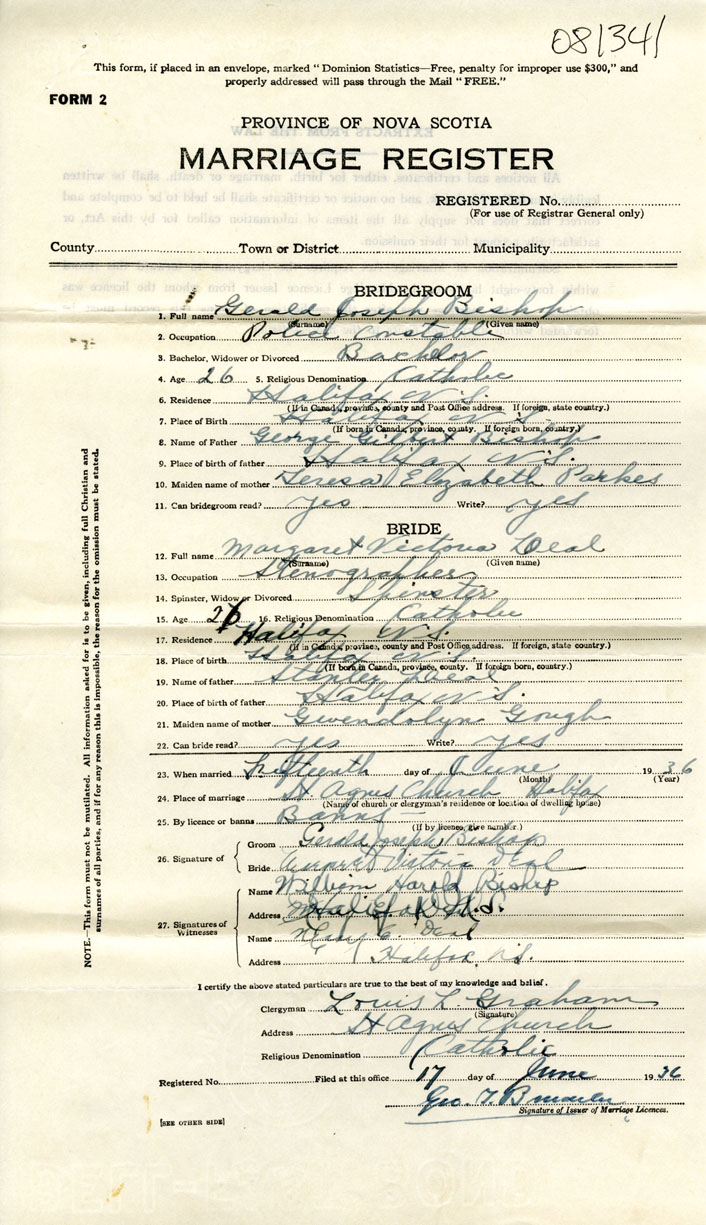 081341
This form, if placed in an envelope, marked "Dominion Statistics—Free, penalty for improper use $300," and
properly addressed will pass through the Mail "FREE."
FORM 2
PROVINCE OF NOVA SCOTIA
MARRIAGE REGISTER
REGISTERED No.
(For use of Registrar General only)
County Town or District Municipality
BRIDEGROOM
1. Full name Gerald Joseph Bishop
(Surname) (Given name)
2. Occupation Police Constable
3. Bachelor, Widower or Divorced Bachelor
4. Age 26 5. Religious Denomination Catholic
6. Residence Halifax N.S.
(If in Canada, province, county and Post Office address. If foreign, state country.)
7. Place of Birth Halifax N.S.
(If born in Canada, province, county. If foreign born, country.)
8. Name of Father George Gilbert Bishop
9. Place of birth of father Halifax N.S.
10. Maiden name of mother Teresa Elizabeth Parkes
11. Can bridegroom read? yes Write? yes
BRIDE
12. Full name Margaret Victoria Deal
(Surname) (Given name)
13. Occupation Stenographer
14. Spinster, Widow or Divorced Spinster
15. Age 26 16. Religious Denomination Catholic
17. Residence Halifax N.S.
(If in Canada, province, county and Post Office address. If foreign, state country.)
18. Place of birth Halifax N.S.
(If born in Canada, province, county. If foreign born, country.)
19. Name of father Stanley Deal
20. Place of birth of father Halifax N.S.
21. Maiden name of mother Gwendolyn Gough
22. Can bride read? yes Write? yes
23. When married Fifteenth day of June 1936
(Month) (Year)
24. Place of marriage St Agnes Church Halifax
(Name of church or clergyman's residence or location of dwelling house)
25. By licence or banns Banns
(If by licence, give number.)
26. Signature of
Groom Gerald Joseph Bishop
Bride Margaret Victoria Deal
27. Signatures of Witnesses
Name William Harold Bishop
Address Halifax N.S.
Name Mary E. Deal
Address Halifax, N.S.
I certify the above stated particulars are true to the best of my knowledge and belief.
Clergyman Louis L. Graham
(Signature)
Address St Agnes Church
Religious Denomination Catholic
Registered No. Filed at this office 17 day of June 1936
Geo. T.
Signature of Issuer of Marriage Licences.
[SEE OTHER SIDE]
NOTE.—This form must not be mutilated. All information asked for is to be given, including full Christian and
surnames of all parties, and if for any reason this is impossible, the reason for the omission must be stated.